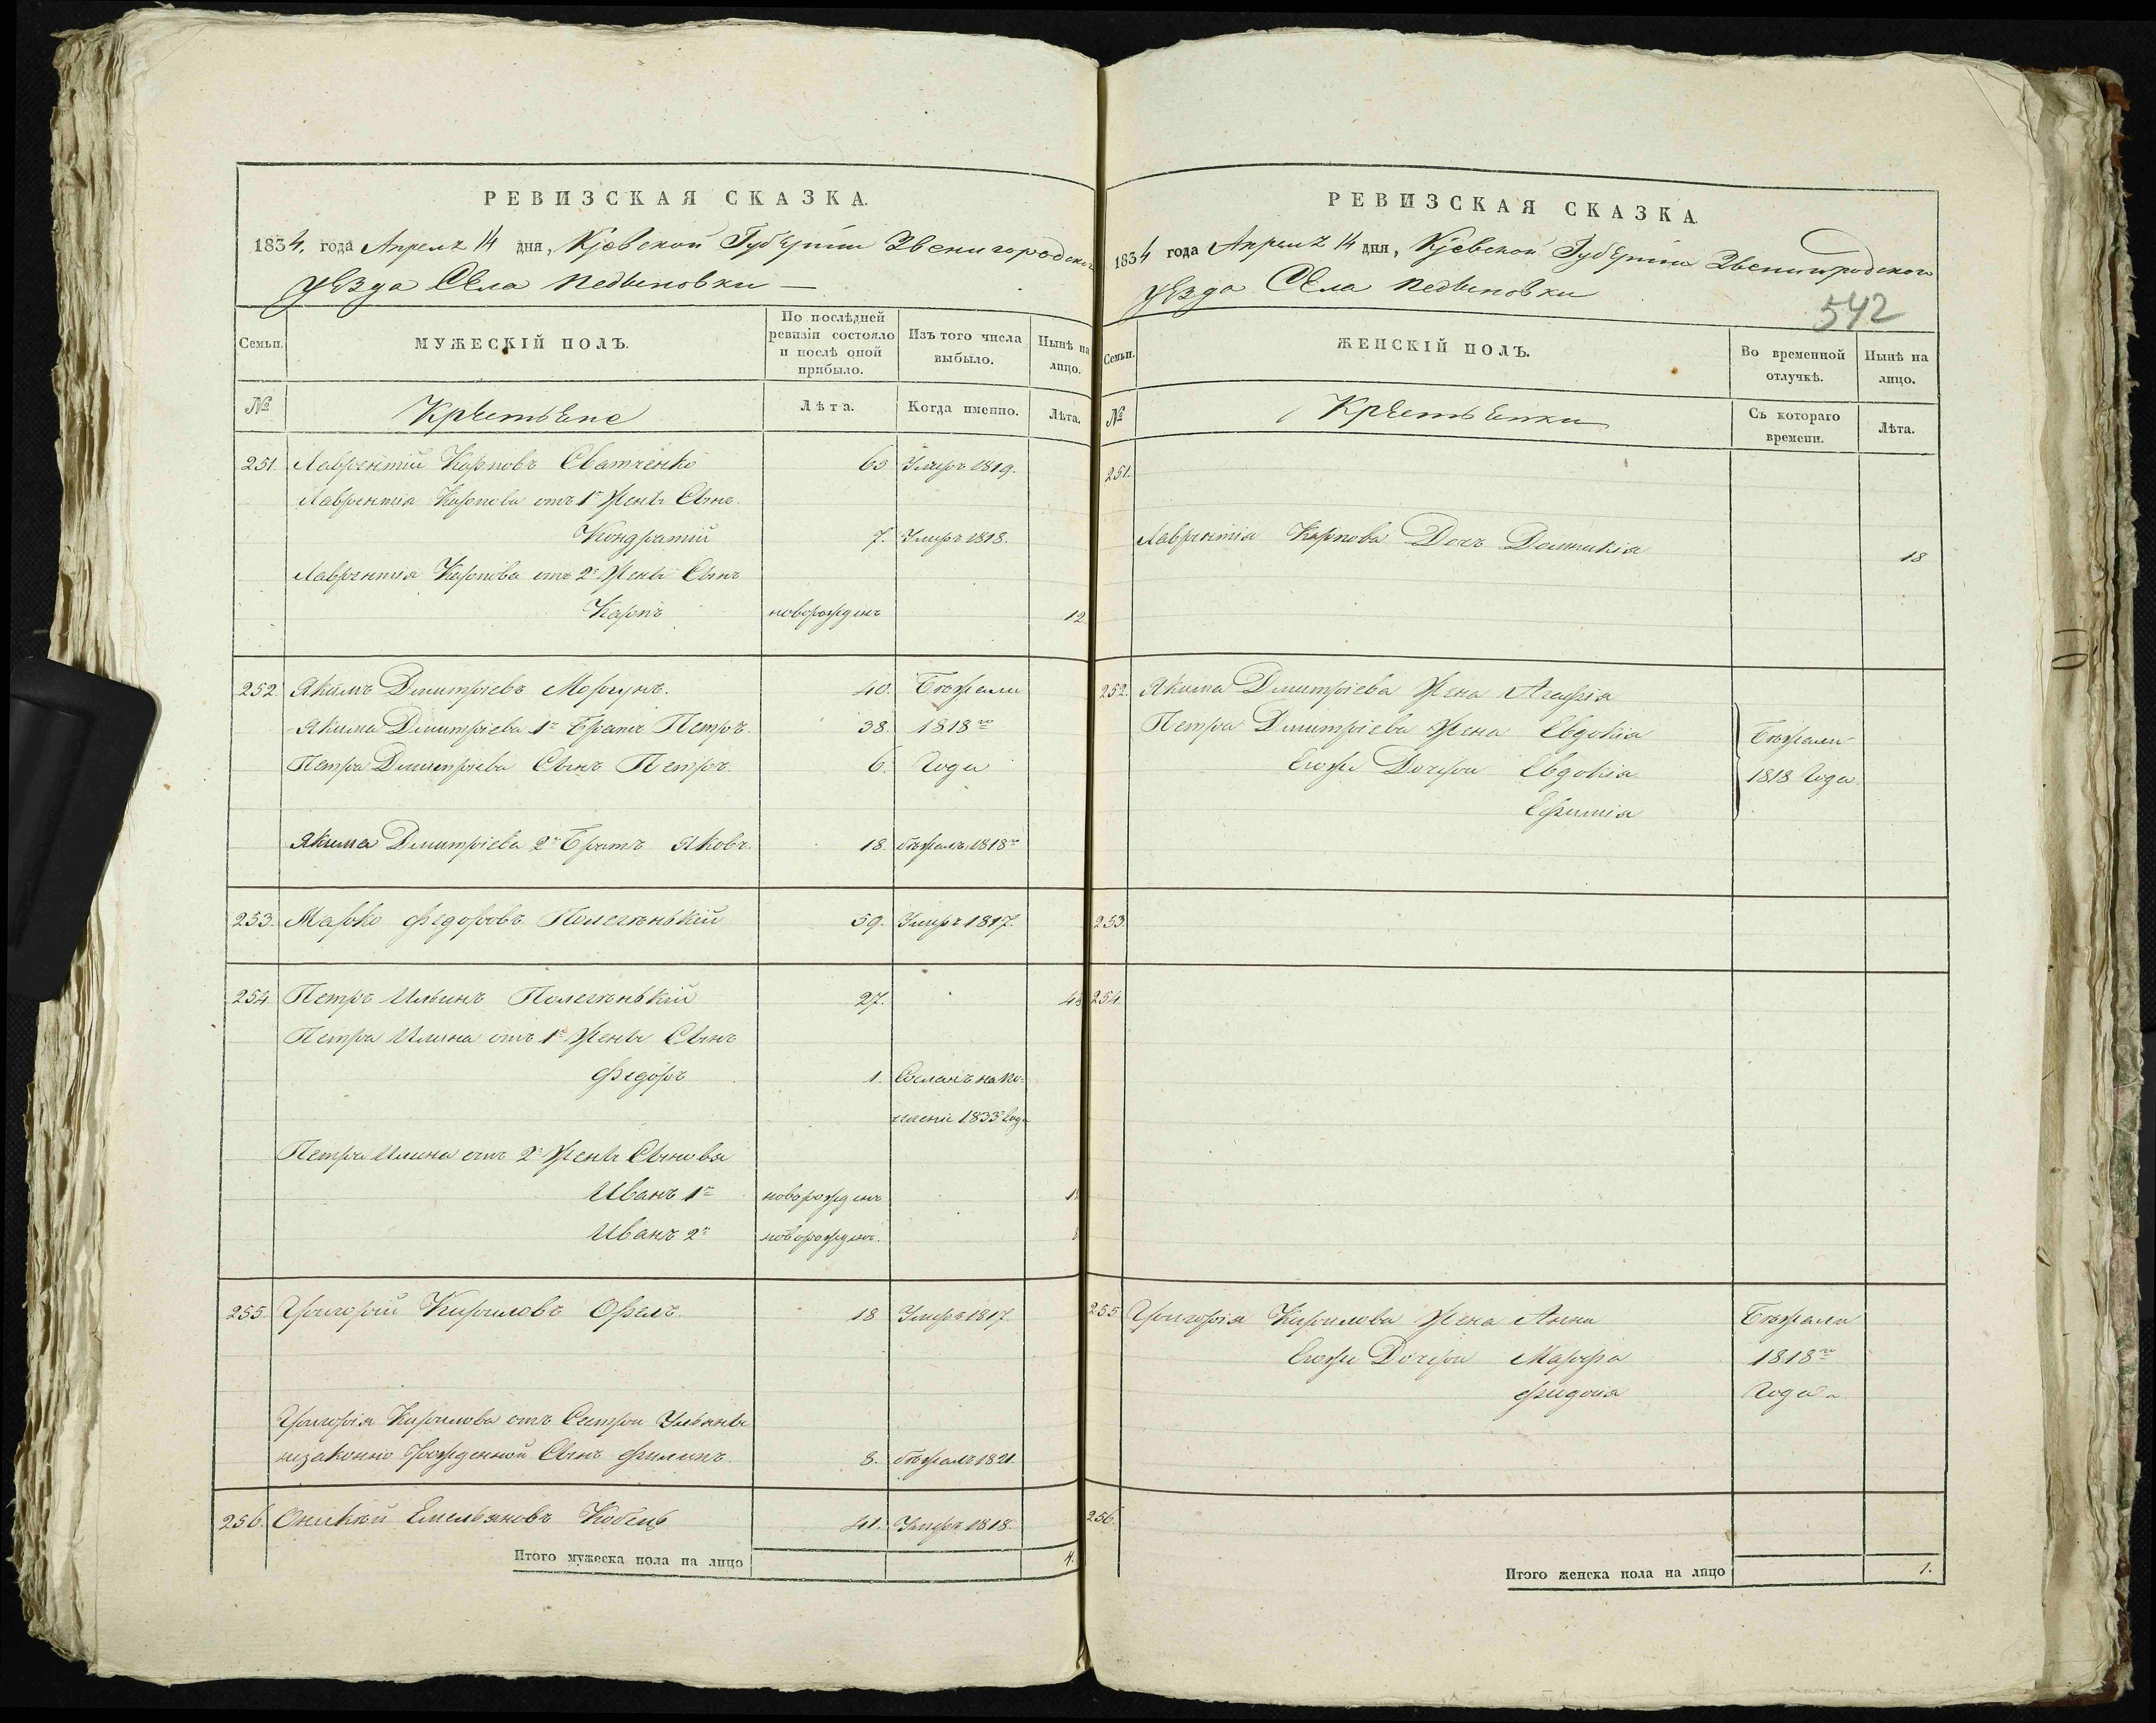 РЕВИЗСКАЯ СКАЗКА.
1834. года Апреля 14 дня, Кіевской Губерніи Звенигородского
уезда Села Педыновки —
Семьи.
МУЖЕСКІЙ ПОЛЪ.
По последней ревизіи состояло и послѣ оной прибыло.
Изъ того числа выбыло.
Нынѣ на лицо.
№
Крестьяне
Лѣта.
Когда именно.
Лѣта.
251. Лаврентій Карповъ Сватченко 65 Умеръ 1819.
Лаврентія Карпова отъ 1й Жены Сынъ
Кондратій 7. Умеръ 1818.
Лаврентія Карпова отъ 2й Жены Сынъ
Карпъ новорожденъ 12.
252. Якимъ Дмитріевъ Моргунъ. 40. Бежали
Якима Дмитріева 1й Братъ Петръ. 38. 1818го
Петра Дмитріева Сынъ Петръ. 6. Года
Якима Дмитріева 2й Братъ Яковъ. 18. бежалъ 1818го
253. Марко Федоровъ Полегенькій 59. Умеръ 1817.
254 Петръ Ильинъ Полегенькій 27. 48
Петра Илина отъ 1й Жены Сынъ
Федоръ 1. Сосланъ на по-
1833 Года
Петра Илина отъ 2й Жены Сыновья
Иванъ 1й новорожденъ
Иванъ 2й новорожденъ.
255. Григорій Кириловъ Орелъ. 18 Умеръ 1817.
Григорія Кирилова отъ Сестры Ульяны
незаконно Рожденной Сынъ Филипъ. 8. бежалъ 1821.
256. Оникій Емельяновъ Кобецъ 41. Умеръ 1818.
Итого мужеска пола на лицо 4.
РЕВИЗСКАЯ СКАЗКА.
1834 года Апреля 14 дня, Кіевской Губерніи Звенигородского
уезда Села Педыновки
542
Семьи.
ЖЕНСКІЙ ПОЛЪ.
Во временной отлучкѣ.
Нынѣ на лицо.
№
Крестьянки
Съ котораго времени.
Лѣта.
251.
Лаврентія Карпова Дочь Домникія 18
252. Якима Дмитріева Жена Агафія
Петра Дмитріева Жена Евдокія Бежали
Егоже Дочери Евдокія 1818 Года.
Ефимія
253.
254.
255 Григорія Кирилова Жена Анна Бежали
Егоже Дочери Марфа 1818го
Года
256.
Итого женска пола на лицо 1.